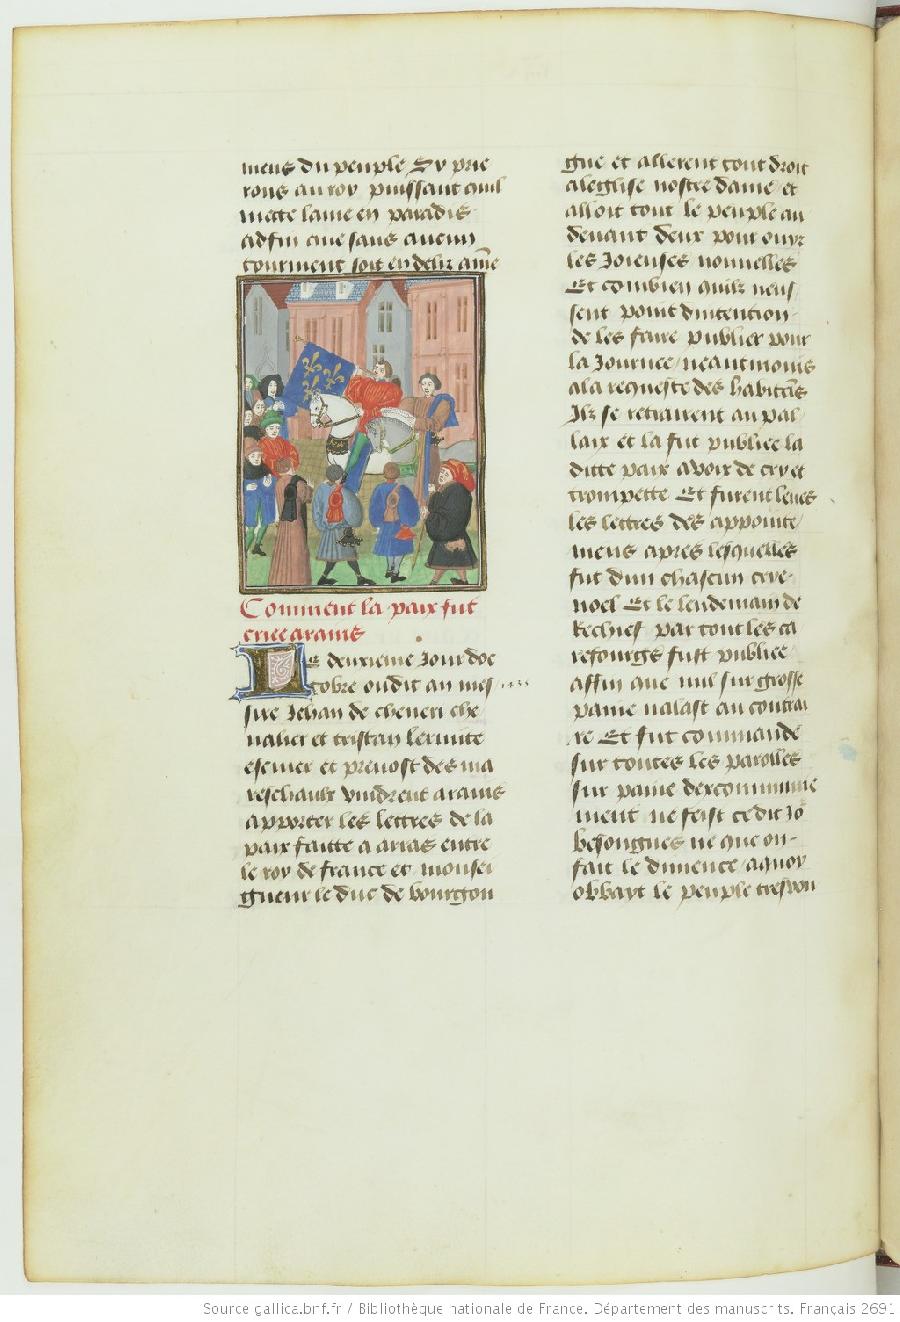 mens du peuple Sy prie
rons au roy puissant quil
mette lame en paradis
adfin que sans aucun
tourment soit en deliz amē
Comment la paix fut
criee a rains
Le deuxieme Jour doc
tobre oudit an mes
sire Jehan de cheneri che
ualier et tristan lermite
escuier et preuost des ma
reschaulx vindrent a rains
apporter les lettres de la
paix faitte a arras entre
le roy de france et monsei
gneur le duc de bourgon
gne et allerent tout droit
a leglise nostre dame et
alloit tout le peuple au
deuant deux pour ouyr
les Joieuses nouuelles
Et combien quilz neus
sent point dintention
de les faire publier pour
la Journee neantmoins
a la requeste des habitās
Ilz se retrairent au pal
laix et la fut publiee la
ditte paix a voix de cry et
trompette Et furent leues
les lettres des appointe
mens apres lesquelles
fut dun chascun crye
noel Et le lendemain de
Rechief par tout les ca
refourgs fust publiee
affin que nul sur grosse
paine nalast au contrai
re Et fut commande
sur toutes les parolles
sur paine dexcommunie
ment ne feist cedit Jo
besongnes ne que on
fait le dimence a quoy
obbayt le peuple tres vou
Source gallica.bnf.fr / Bibliothèque nationale de France. Département des manuscrits. Français 2691